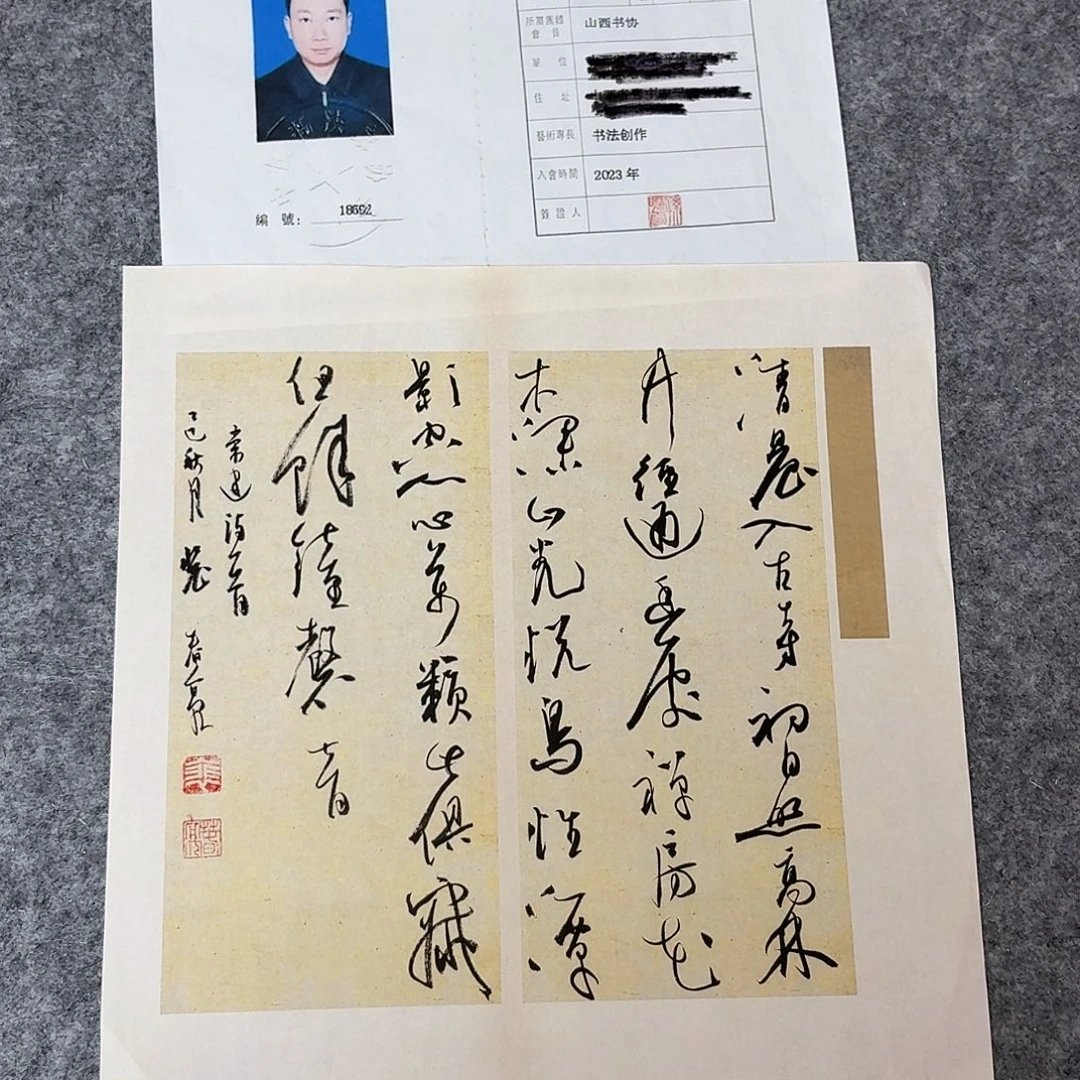 所屬團體會員 山西书协
單 位
住 址
藝術專長 书法创作
入會時間 2023年
簽證人
編 號: 18692
清晨入古寺初日照高林
徑通幽處禪房花
木深山光悦鳥性潭
影空人心萬籟此俱寂
但餘鐘磬音
常建詩一首
乙巳秋月 春亮